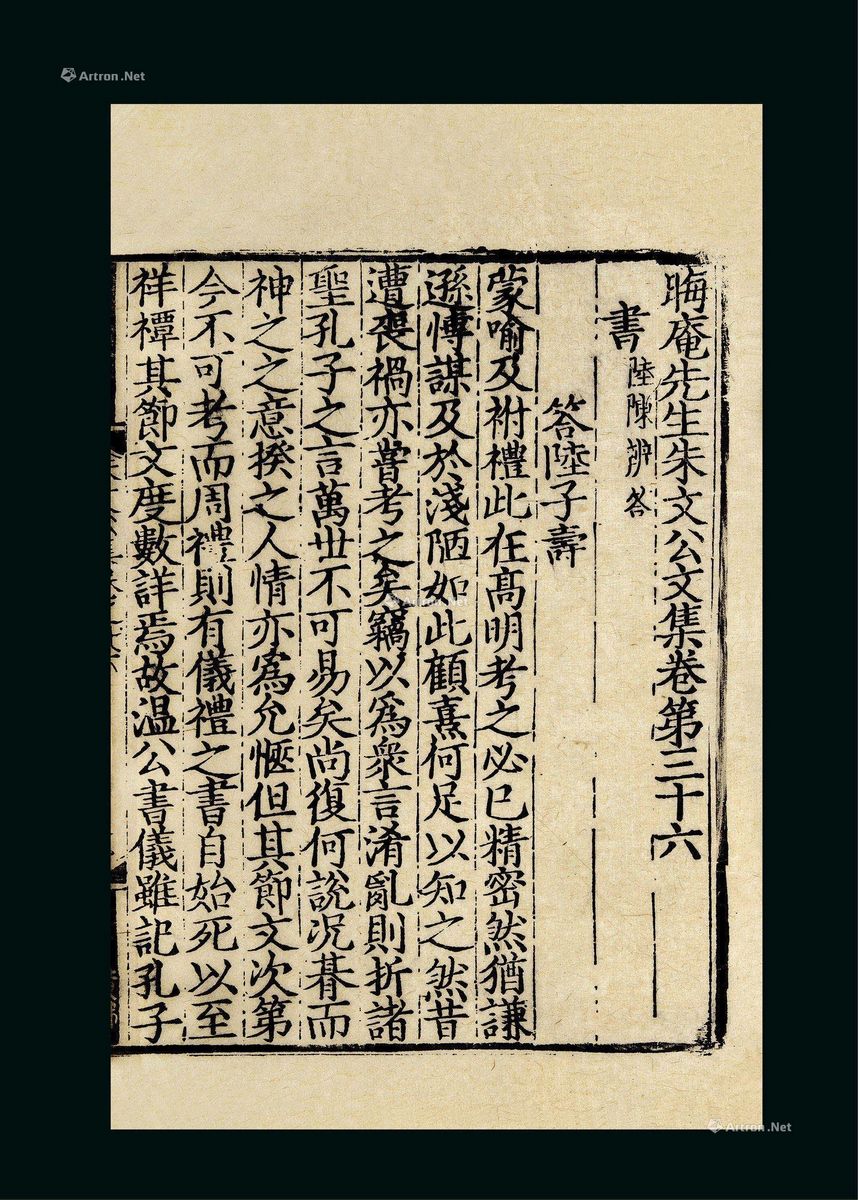 晦庵先生朱文公文集卷第三十六
書 陸陳辨答
答陸子壽
蒙喻及祔禮此在高明考之必已精密然猶謙
遜博謀及於淺陋如此顧熹何足以知之然昔
遭喪禍亦嘗考之矣竊以爲衆言淆亂則折諸
聖孔子之言萬世不可易矣尚復何說况朞而
神之之意揆之人情亦爲允愜但其節文次第
今不可考而周禮則有儀禮之書自始死以至
祥禫其節文度數詳焉故温公書儀雖記孔子
Artron.Net
Artron.Net
Artron.Net